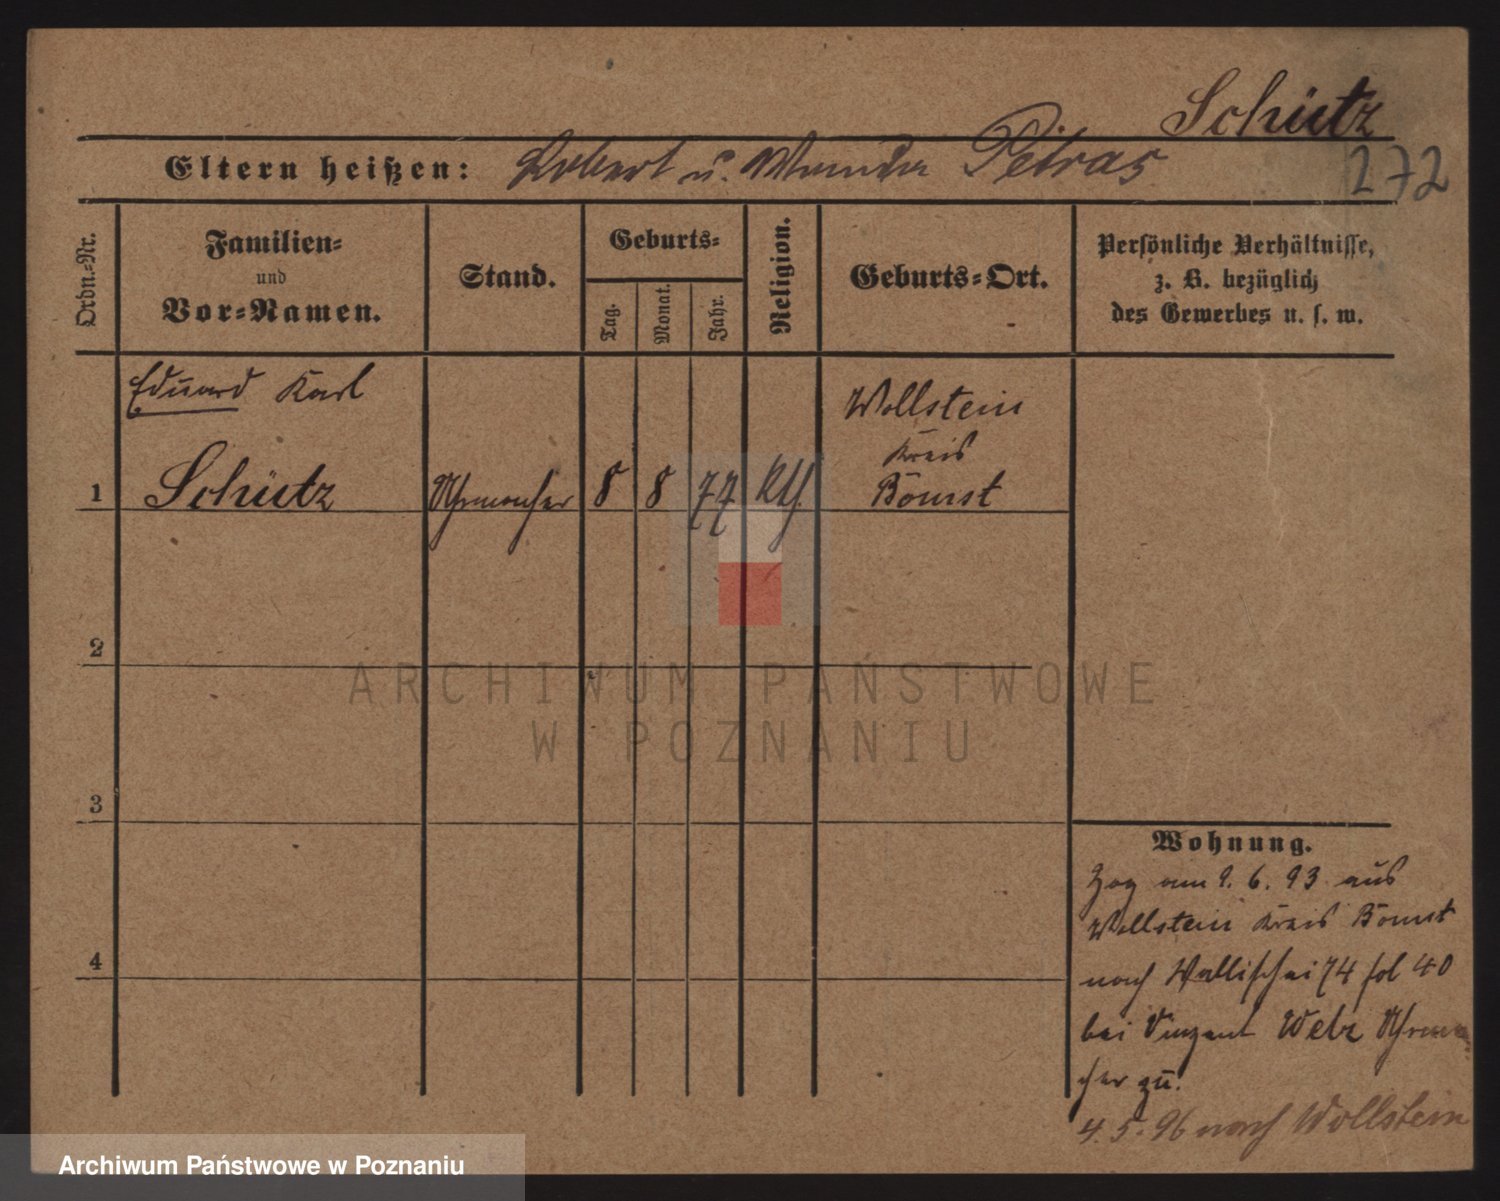 Schütz
272
Eltern heißen: Robert u. Pétras
Ordn.-Nr.
Familien-
und
Vor-Namen.
Stand.
Geburts-
Tag.
Monat.
Jahr.
Religion.
Geburts-Ort.
Persönliche Verhältnisse,
z. B. bezüglich
des Gewerbes u. s. w.
Eduard Karl
Wollstein
Kreis
1 Schütz Uhrmacher 8 8 77 kth. Bomst
2
3
4
Wohnung.
Zog am 9. 6. 93 aus
Wollstein Kreis Bomst
nach Wallischei 74 fol 40
bei Vinzent Welz Uhrma
cher zu.
4. 5. 96 nach Wollstein
ARCHIWUM PAŃSTWOWE
W POZNANIU
Archiwum Państwowe w Poznaniu